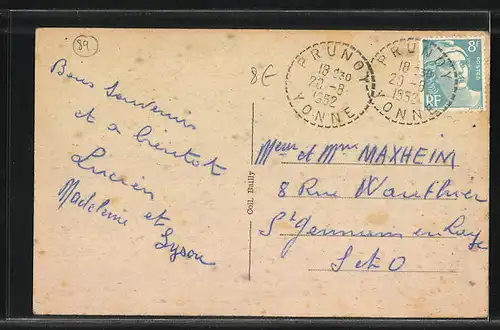 89
8€
PRUNOY
18 H30
20 -8
1952
YONNE
PRUNOY
18 H30
20 -8
1952
YONNE
8F
POSTES
RF
Bons souvenirs
et a bientot
Lucien
Madeleine et
Lyson
Coll. Bailly
Meur et Mme MAXHEIM
8 Rue Wauthier
St Germain en Laye
S et O